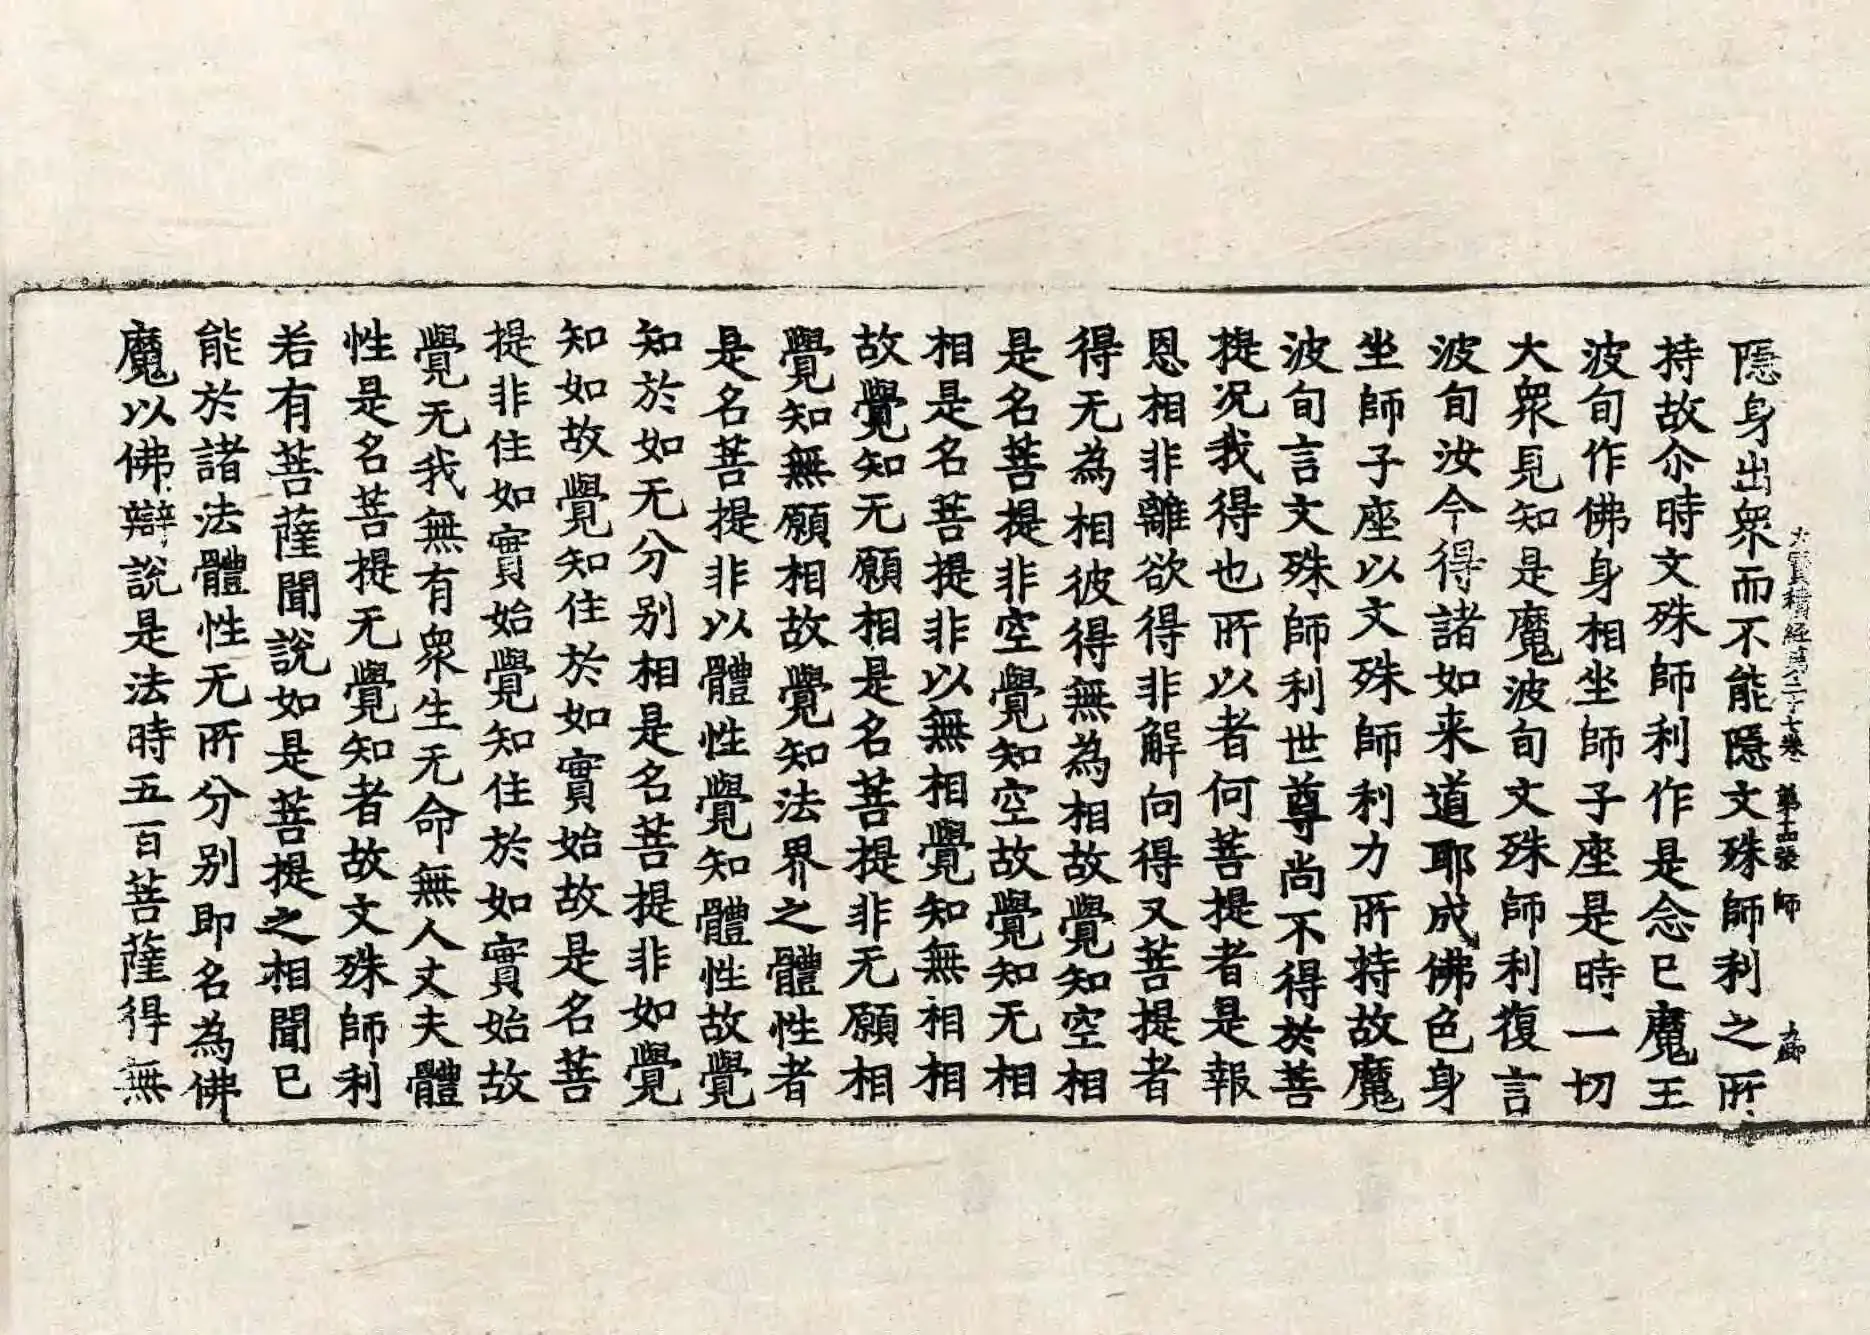 大寶積經第二十七卷 第十四張 師
隱身出衆而不能隱文殊師利之所
持故尒時文殊師利作是念已魔王
波旬作佛身相坐師子座是時一切
大衆見知是魔波旬文殊師利復言
波旬汝今得諸如来道耶成佛色身
坐師子座以文殊師利力所持故魔
波旬言文殊師利世尊尚不得於菩
提况我得也所以者何菩提者是報
恩相非離欲得非解向得又菩提者
得无為相彼得無為相故覺知空相
是名菩提非空覺知空故覺知无相
相是名菩提非以無相覺知無相相
故覺知无願相是名菩提非无願相
覺知無願相故覺知法界之體性者
是名菩提非以體性覺知體性故覺
知於如无分別相是名菩提非如覺
知如故覺知住於如實始故是名菩
提非住如實始覺知住於如實始故
覺无我無有衆生无命無人丈夫體
性是名菩提无覺知者故文殊師利
若有菩薩聞說如是菩提之相聞已
能於諸法體性无所分別即名為佛
魔以佛辯說是法時五百菩薩得無